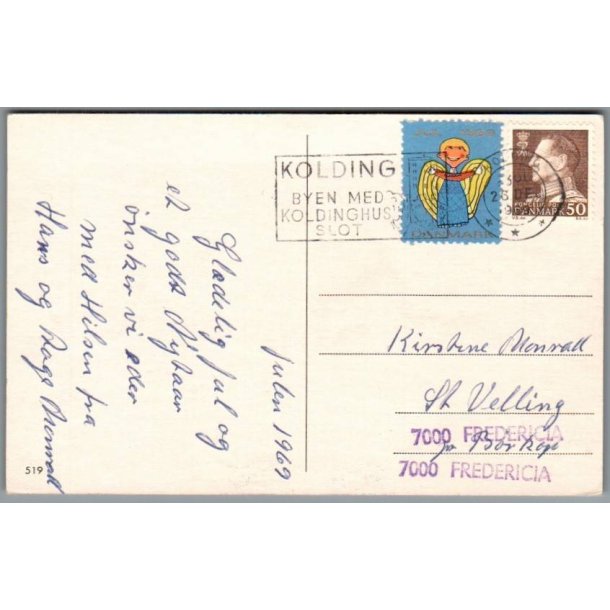 Julen 1969
Glædelig Jul og
et godt Nytaar
ønsker vi eder
med Hilsen fra
Hans og Aage Monrad
519
KOLDING
BYEN MED
KOLDINGHUS
SLOT
JUL 1969
DANMARK
DANMARK 50
Kirstine Monrad
St Velling
pr Börkop
7000 FREDERICIA
7000 FREDERICIA